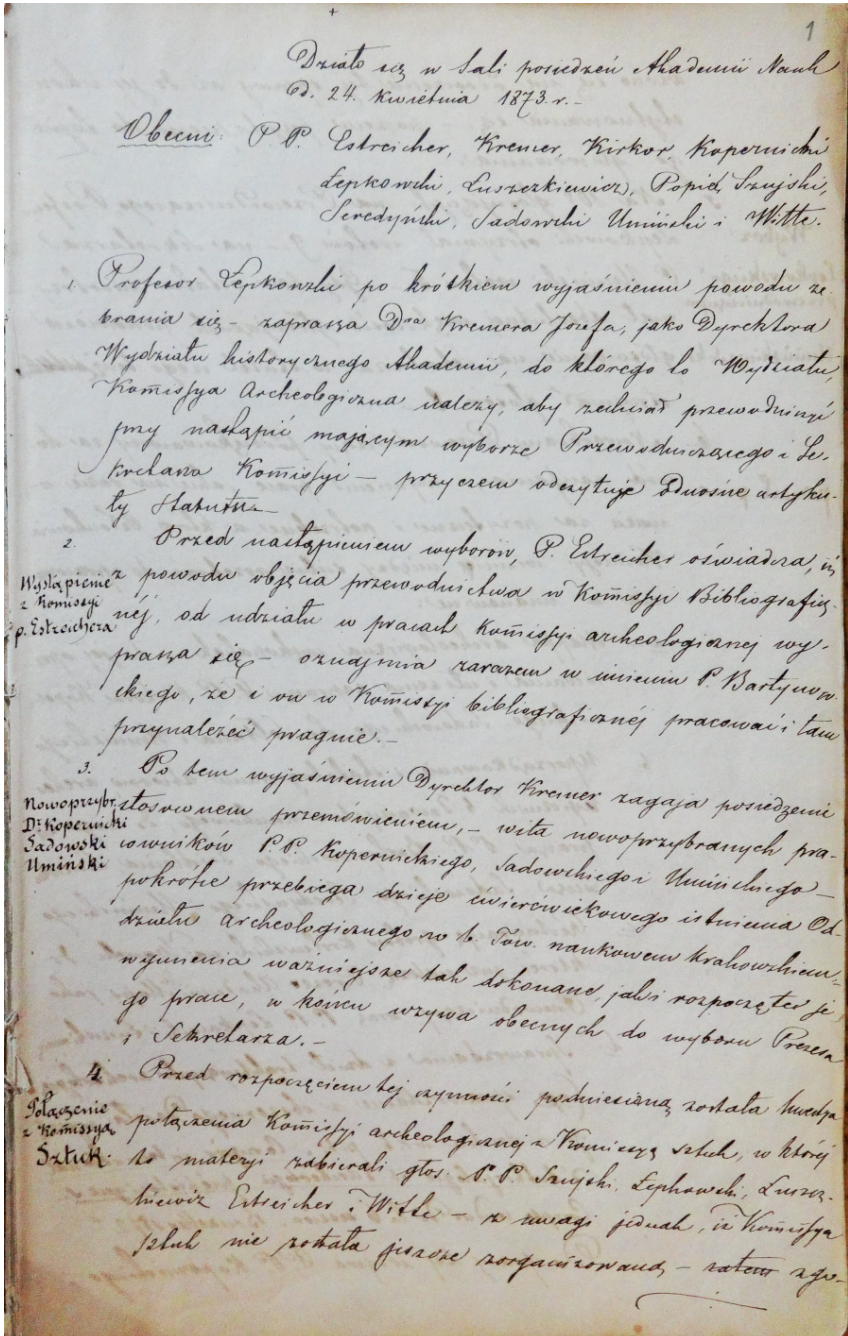 1
Działo się w Sali posiedzeń Akademii Nauk
d. 24. Kwietnia 1873. r. -
Obecni: P. P. Estreicher, Kremer, Kirkor, Kopernicki
Łepkowski, Łuszczkiewicz, Popiel, Szujski,
Seredyński, Sadowski Umiński i Witte.
1. Profesor Łepkowski po krótkiem wyjaśnieniu powodu ze-
brania się – zaprasza Dra Kremera Józefa, jako Dyrektora
Wydziału historycznego Akademii, do którego to Wydziału,
Komissya Archeologiczna należy, aby zechciał przewodniczyć
przy nastąpić mającym wyborze Przewodniczącego i Se-
kretarza Komissyi – przyczem odczytuje odnośne artyku-
ły Statutu. –
2. Przed nastąpieniem wyborów, P. Estreicher oświadcza, iż
Wystąpienie
z Komissyi
p. Estreichera
z powodu objęcia przewodnictwa w Komissyi Bibliograficz-
néj, od udziału w pracach Komissyi archeologicznej wy-
prasza się – oznajmia zarazem w imieniu P. Bartynow-
skiego, że i on w Komissyi bibliograficznéj pracować i tam
przynależéć pragnie. –
3. Po tem wyjaśnieniu Dyrektor Kremer zagaja posiedzenie
Nowoprzybr.
Dr Kopernicki
Sadowski
Umiński
stosownem przemówieniem, – wita nowoprzybranych pra-
cowników P. P. Kopernickiego, Sadowskiego i Umińskiego –
pokrótce przebiega dzieje ćwierćwiekowego istnienia Od-
działu archeologicznego w b. Tow. naukowem Krakowskiem,
wymienia ważniejsze tak dokonane, jak i rozpoczęte je-
go prace, w końcu wzywa obecnych do wyboru Prezesa
i Sekretarza. –
4. Przed rozpoczęciem tej czynności podniesioną została kwestya
Połączenie
z Komissyą
Sztuk.
połączenia Komissyi archeologicznej z Komissyą sztuk, w której
to materyi zabierali głos. P. P. Szujski, Łepkowski, Łuszcz-
kiewicz Estreicher i Witte – z uwagi jednak, iż Komissya
sztuk nie została jeszcze zorganizowaną – zatem zgo-